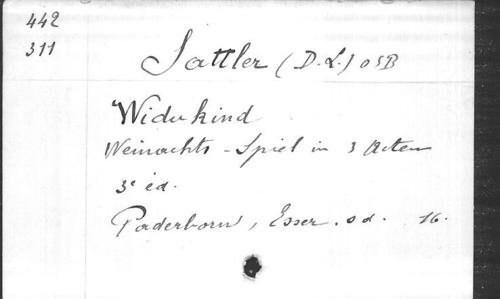 442
311
Sattler (D. L.) OSB
Widukind
Weinachts-Spiel in 3 Acten
3e éd.
Paderborn, Esser. sd. 16.